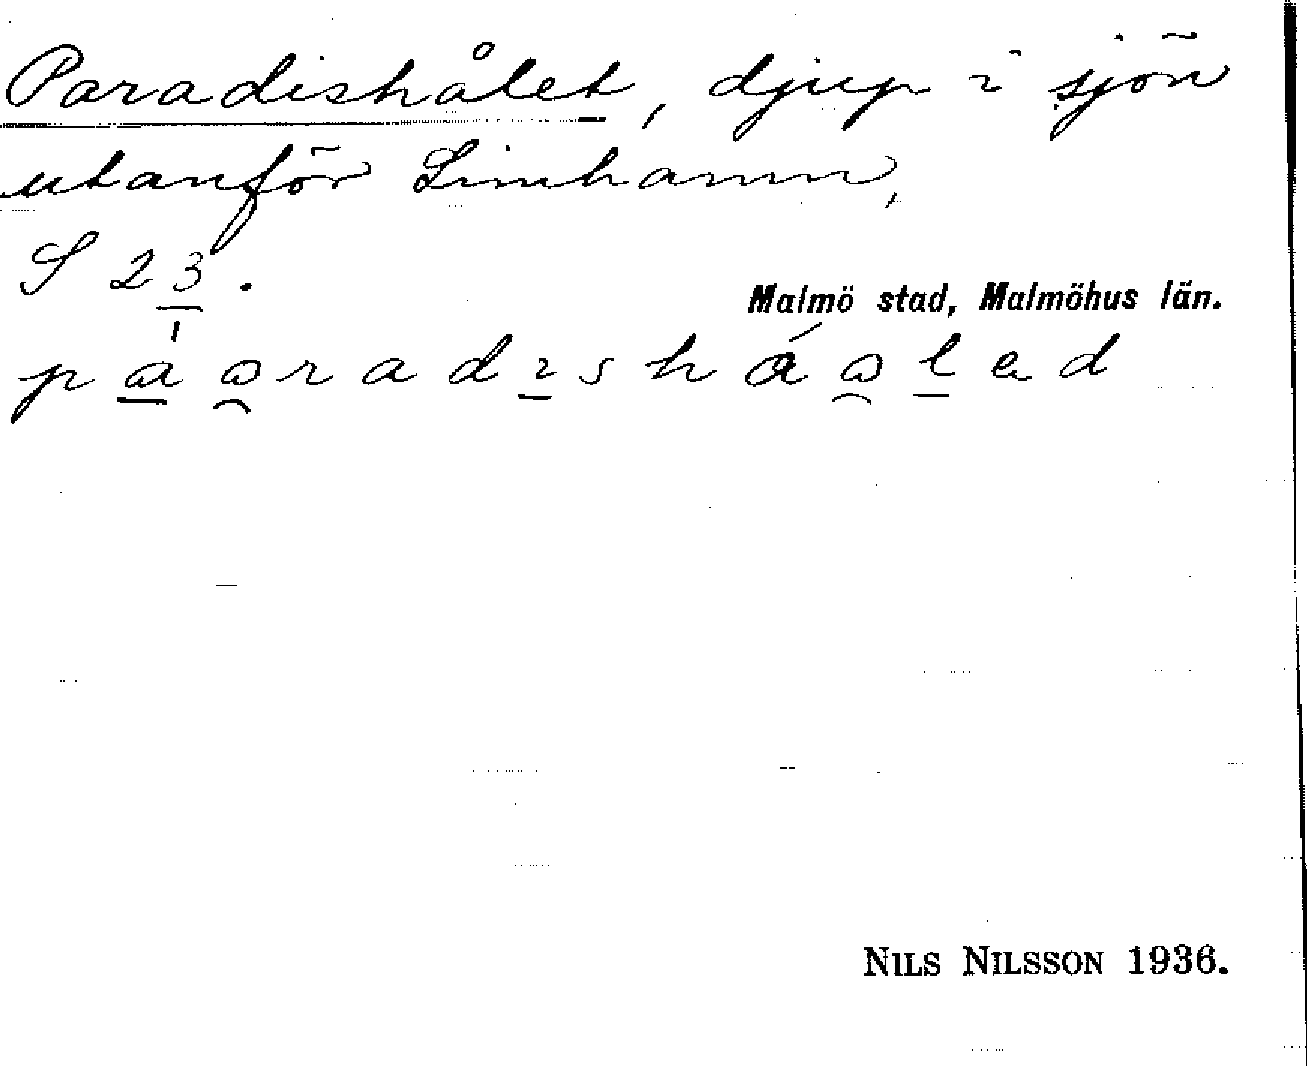 Paradishålet, djup i sjön
utanför Limhamn,
S 23.
Malmö stad, Malmöhus län.
NILS NILSSON 1936.